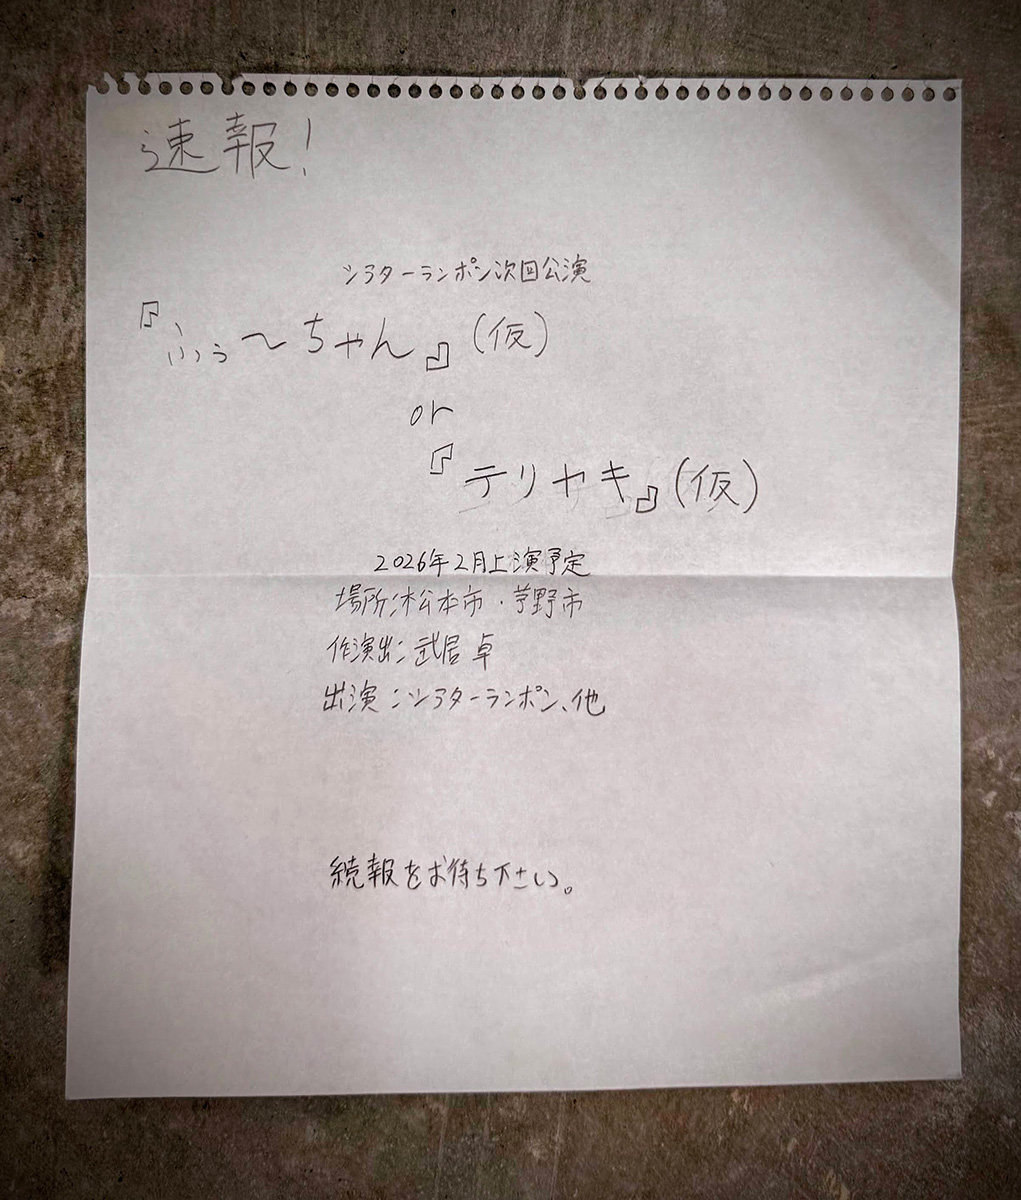 速報!
シアターランポン次回公演
『ふぅ〜ちゃん』(仮)
or
『テリヤキ』(仮)
2026年2月上演予定
場所:松本市・茅野市
作演出:武居 卓
出演:シアターランポン、他
続報をお待ち下さい。